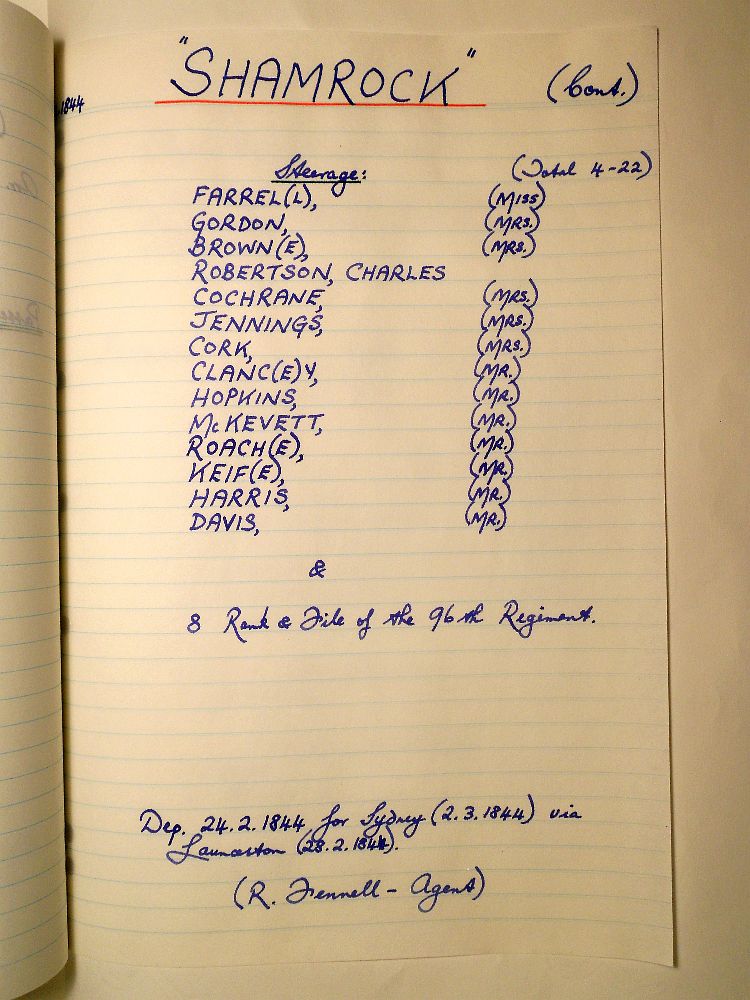 "SHAMROCK" (Cont.)
.1844
Steerage: (Total 4-22)
FARREL(L), (MISS)
GORDON, (MRS.)
BROWN(E), (MRS.)
ROBERTSON, CHARLES
COCHRANE, (MRS.)
JENNINGS, (MRS.)
CORK, (MRS.)
CLANC(E)Y, (MR.)
HOPKINS, (MR.)
McKEVETT, (MR.)
ROACH(E), (MR.)
KEIF(E), (MR.)
HARRIS, (MR.)
DAVIS, (MR.)
&
8 Rank & File of the 96th Regiment.
Dep. 24.2.1844 for Sydney (2.3.1844) via
Launceston (28.2.1844).
(R. Fennell - Agent)